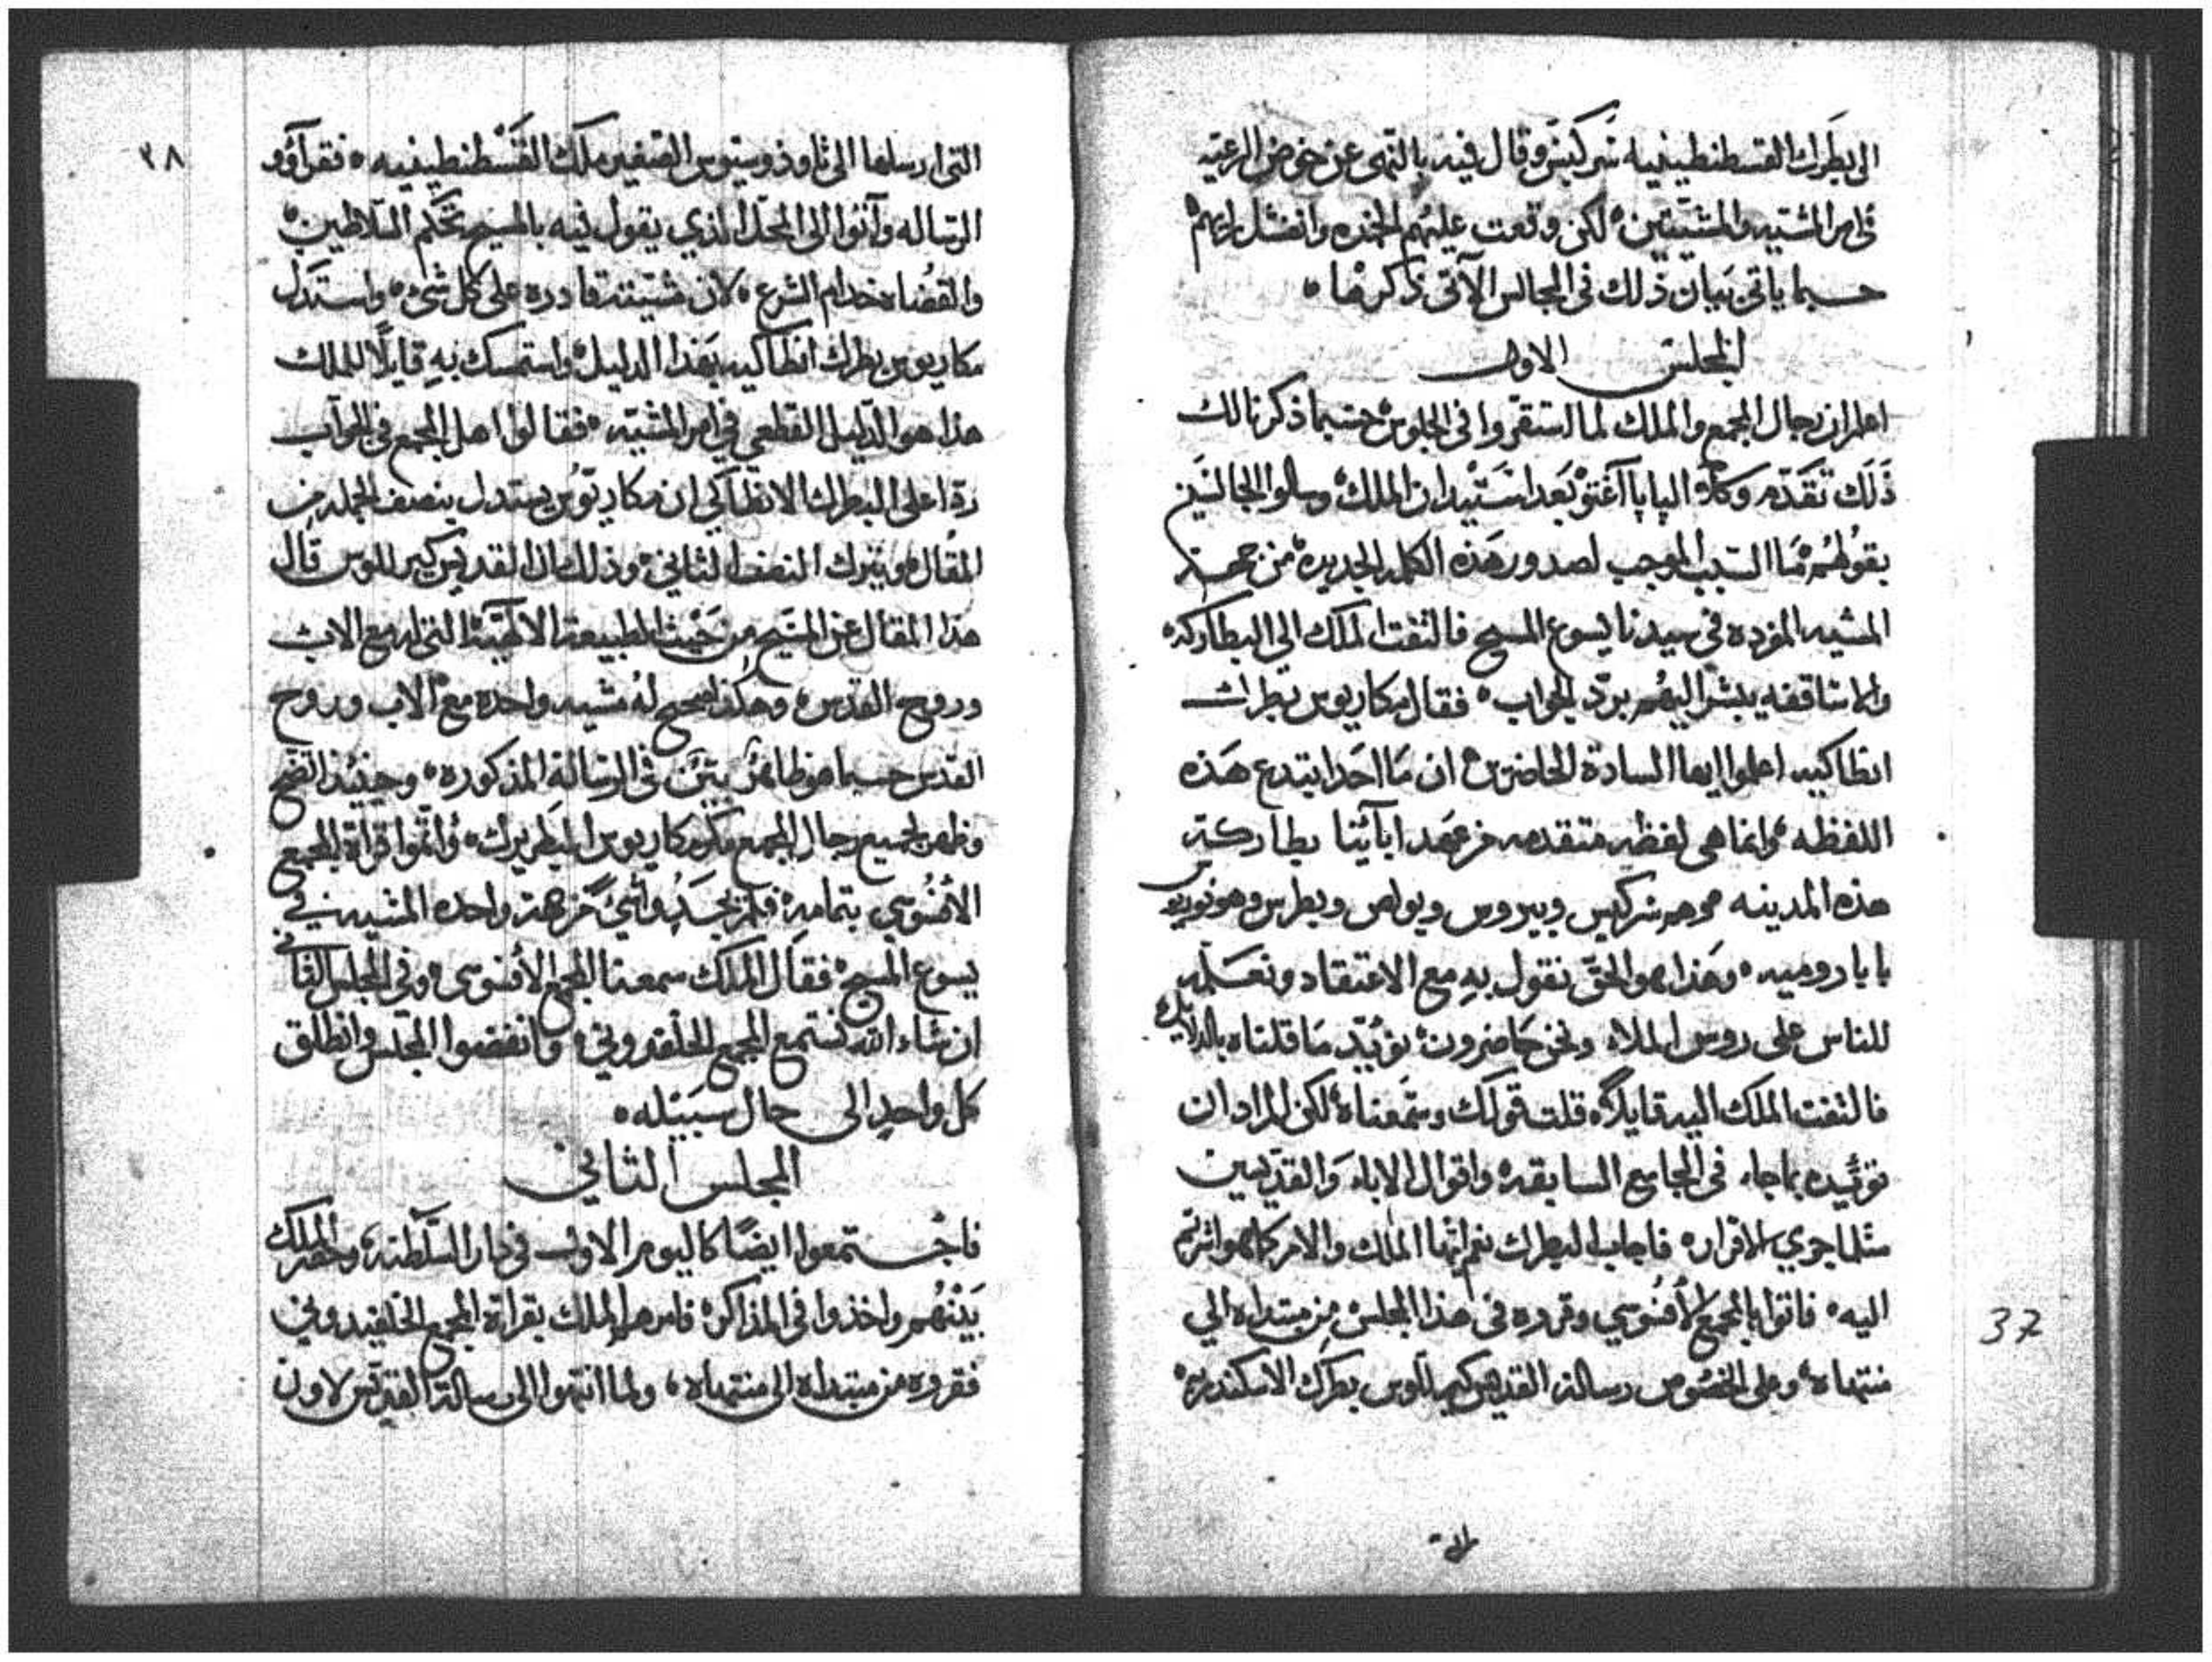 الى بطرك القسطنطينيه سركيس وقال فيه بالنهى عن خوض الرعيه
في امر المشيه والمشيتين لكن وقعت عليهم الخمده وانفشل رايهم
حسبما ياتي بيان ذلك في المجالس الآتى ذكرها
المجلس الاول
اعلم ان رجال المجمع والملك لما استقروا في الجلوس حسبما ذكرنا لك
ذلك تقدم وكلاء الپاپا آغتو بعد استيدان الملك وسالوا الجالسين
بقولهم ما السبب الموجب لصدور هذه الكلمه الجديده من جهة
المشيه المفرده في سيدنا يسوع المسيح فالتفت الملك الى البطاركه
والاساقفه يشير اليهم برد الجواب فقال مكاريوس بطرك
انطاكيه اعلموا ايها السادة الحاضرين ان ما احدا ابتدع هذه
اللفظه وانما هي لفظه متقدمه من عهد ابآئينا بطاركة
هذه المدينه وهم سركيس وبيروس وبولص وبطرس وهونوريوس
بابا روميه وهذا هو الحق نقول به مع الاعتقاد ونعلمه
للناس على روس الملاء ونحن حاضرون نويد ما قلناه بالدلايل
فالتفت الملك اليه قايلاً قلت قولك وسمعناه لكن المراد ان
تويده بما جاء في المجامع السابقه واقوال الاباء والقديسين
مثلما جري الاقرار فاجاب البطرك نعم ايها الملك والامر كما هو اشرتم
اليه فاتوا بالمجمع الأفسوسي وقروه في هذا المجلس من مبتداه الي
منتهاه وعلى الخصوص رسالة القديس كيرللوس بطرك الاسكندريه
لا
37
٣٨
التى ارسلها الى ثاوذوسيوس الصغير ملك القسطنطينيه فقرآؤو
الرساله وآتوا الى المحل الذي يقول فيه بالمسيح تحكم السلاطين
والقضاه خدام الشرع لان مشيته قادره على كل شئ واستدل
مكاريوس بطرك انطاكيه بهذا الدليل واستمسك به قايلاً للملك
هذا هو الدليل القطعي في امر المشيه فقالوا اهل المجمع في الجواب
ردا على البطرك الانطاكي ان مكاريوس يستدل بنصف الجمله من
المقال ويترك النصف الثاني وذلك ان القديس كيرللوس قال
هذا المقال عن المسيح من حيث الطبيعة الالهية التى له مع الاب
وروح القدس وهكذا صحيح له مشيه واحده مع الاب وروح
القدس حسبما هو ظاهر بيّن في الرسالة المذكوره وحينئذ اتضح
وظهر لجميع رجال المجمع مكر مكاريوس البطريرك واتموا قراة المجمع
الأفسوسي بتمامه فلم يجدوا شئ من جهة واحده المشيه في
يسوع المسيح فقال الملك سمعنا المجمع الأفسوسى وفي المجلس الثاني
ان شاء الله نستمع المجمع الخلقدوني وانفضوا المجلس وانطلق
كل واحد الى حال سبيله
المجلس الثاني
فاجتمعوا ايضًا كاليوم الاول في دار السلطنه وحضر الملك
بينهم واخذوا في المذاكره فامر الملك بقراة المجمع الخلقيدوني
فقروه من مبتداه الى منتهاه ولما انتهوا الى رسالة القديس لاون